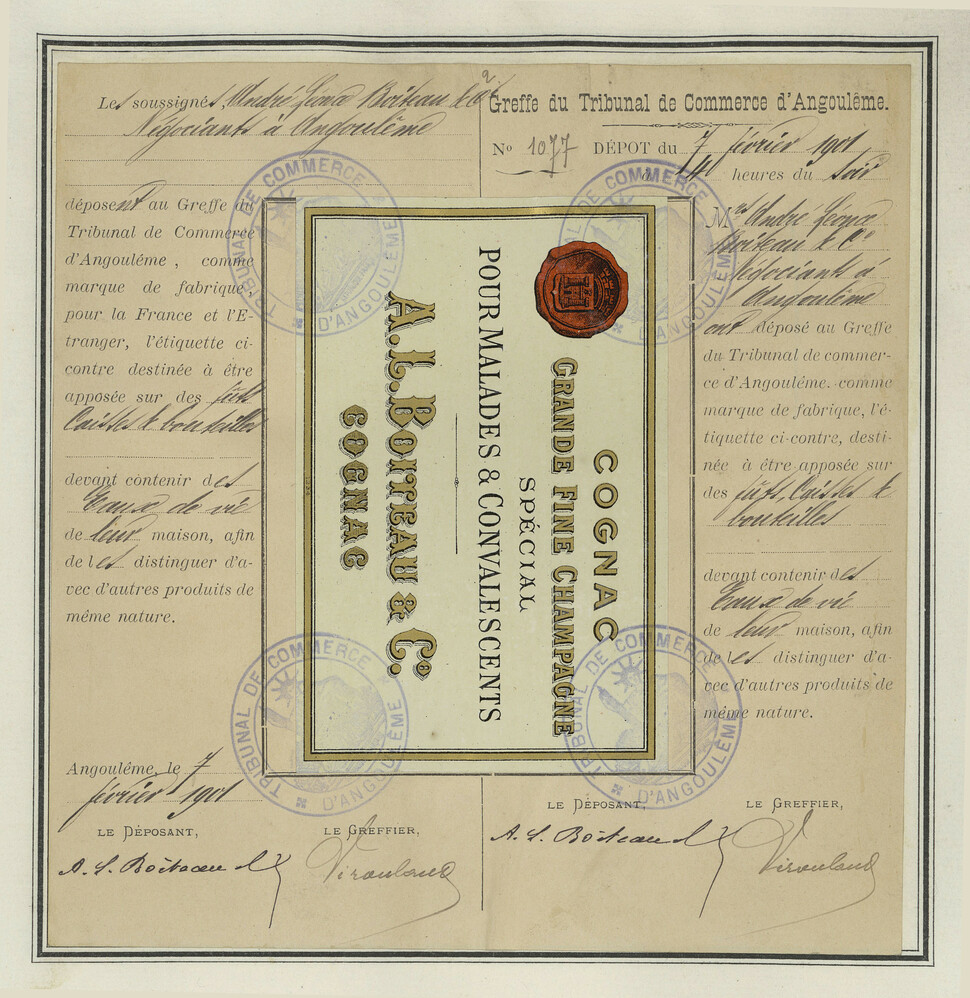 Les soussignés, André Léonce Boiteau & Cie
Négociants à Angoulême
déposent au Greffe du
Tribunal de Commerce
d'Angoulême, comme
marque de fabrique,
pour la France et l'E-
tranger, l'étiquette ci-
contre destinée à être
apposée sur des fûts
Caisses & bouteilles
devant contenir des
Eaux de vie
de leur maison, afin
de les distinguer d'a-
vec d'autres produits de
même nature.
Angoulême, le 7
février 1901
LE DÉPOSANT,
A. L. Boiteau
LE GREFFIER,
COGNAC
GRANDE FINE CHAMPAGNE
SPÉCIAL
POUR MALADES & CONVALESCENTS
A.L. BOITEAU & Co.
COGNAC
H
2
Greffe du Tribunal de Commerce d'Angoulême.
No 1077 DÉPOT du 7 février 1901
à 4 heures du Soir
Mrs André Léonce
Boiteau & Co
Négociants à
Angoulême
ont déposé au Greffe
du Tribunal de commer-
ce d'Angoulême. comme
marque de fabrique, l'é-
tiquette ci-contre, desti-
née à être apposée sur
des fûts, Caisses &
bouteilles
devant contenir des
Eaux de vie
de leur maison, afin
de les distinguer d'a-
vec d'autres produits de
même nature.
LE DÉPOSANT,
A. L. Boiteau
LE GREFFIER,
TRIBUNAL DE COMMERCE D'ANGOULÊME
TRIBUNAL DE COMMERCE D'ANGOULÊME
TRIBUNAL DE COMMERCE D'ANGOULÊME
TRIBUNAL DE COMMERCE D'ANGOULÊME